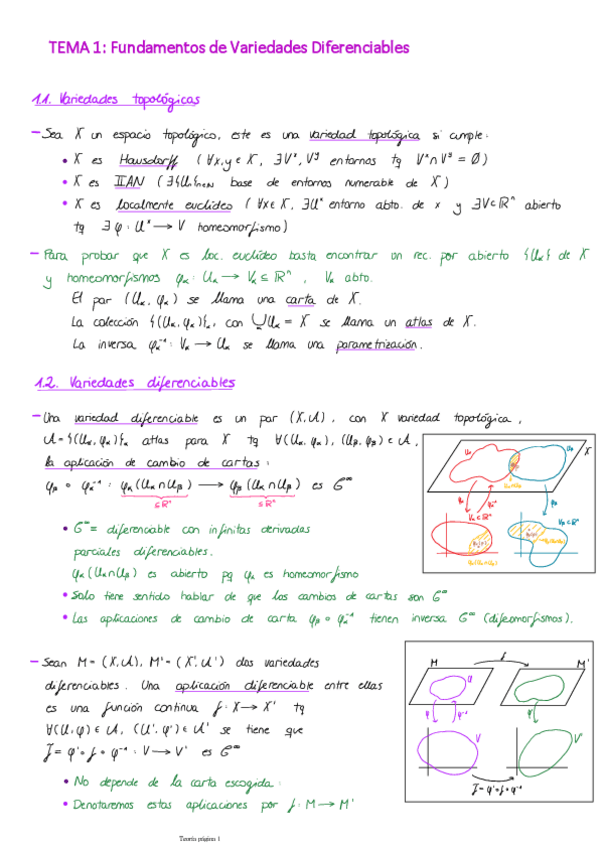 TEMA 1: Fundamentos de Variedades Diferenciables
1.1. Variedades topológicas
– Sea X un espacio topológico, este es una variedad topológica si cumple:
• X es Hausdorff (∀x,y ∈ X, ∃V^x, V^y entornos tq V^x ∩ V^y = Ø)
• X es IIAN (∃{Un}n∈N base de entornos numerable de X)
• X es localmente euclídeo (∀x∈X, ∃U^x entorno abto. de x y ∃V⊂ℝⁿ abierto
tq ∃φ: U^x → V homeomorfismo)
– Para probar que X es loc. euclídeo basta encontrar un rec. por abierto {Uα} de X
y homeomorfismos φα: Uα → Vα ⊆ ℝⁿ, Vα abto.
El par (Uα, φα) se llama una carta de X.
La colección {(Uα, φα)}α, con ∪Uα = X se llama un atlas de X.
La inversa φα⁻¹: Vα → Uα se llama una parametrización.
1.2. Variedades diferenciables
– Una variedad diferenciable es un par (X, U), con X variedad topológica,
U = {(Uα, φα)}α atlas para X tq ∀(Uα, φα), (Uβ, φβ) ∈ U,
la aplicación de cambio de cartas:
φβ ∘ φα⁻¹: φα(Uα∩Uβ) → φβ(Uα∩Uβ) es C^∞
⊆ℝⁿ ⊆ℝⁿ
X
Uα Uβ
φα φα⁻¹ φβ
Vα⊆ℝⁿ Vβ⊆ℝⁿ
φα(Uα∩Uβ)
• C^∞ = diferenciable con infinitas derivadas
parciales diferenciables.
φα(Uα∩Uβ) es abierto pq φα es homeomorfismo
• Solo tiene sentido hablar de que los cambios de cartas son C^∞
• Las aplicaciones de cambio de carta φβ ∘ φα⁻¹ tienen inversa C^∞ (difeomorfismos).
– Sean M = (X, U), M' = (X', U') dos variedades
diferenciables. Una aplicación diferenciable entre ellas
es una función continua f: X → X' tq
∀(U, φ) ∈ U, (U', φ') ∈ U' se tiene que
f̃ = φ' ∘ f ∘ φ⁻¹: V → V' es C^∞
• No depende de la carta escogida:
• Denotaremos estas aplicaciones por f: M → M'
M f M'
U
φ φ⁻¹ φ'
V V'
f̃ = φ' ∘ f ∘ φ⁻¹
Teoría página 1